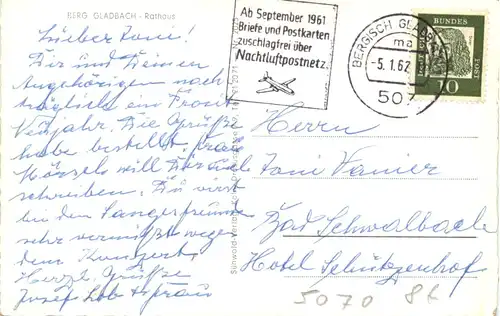 BERG. GLADBACH - Rathaus
Lieber Toni!
Dir und Deinen
Angehörigen nach
träglich ein Prosit
Neujahr. Die Grüße
habe bestellt, Frau
will Dir auch
schreiben. Du wirst
bei den Sangesfreunden
sehr vermißt wegen
dem Konzert.
Herzl. Grüße
Josef u. Frau
Ab September 1961
Briefe und Postkarten
zuschlagfrei über
Nachtluftpostnetz.
BERGISCH GLADBACH
ma
-5.1.62
507
BUNDES
POST
10
Herrn
Toni
Bad Schwalbach
Hotel Schützenhof
5070 86